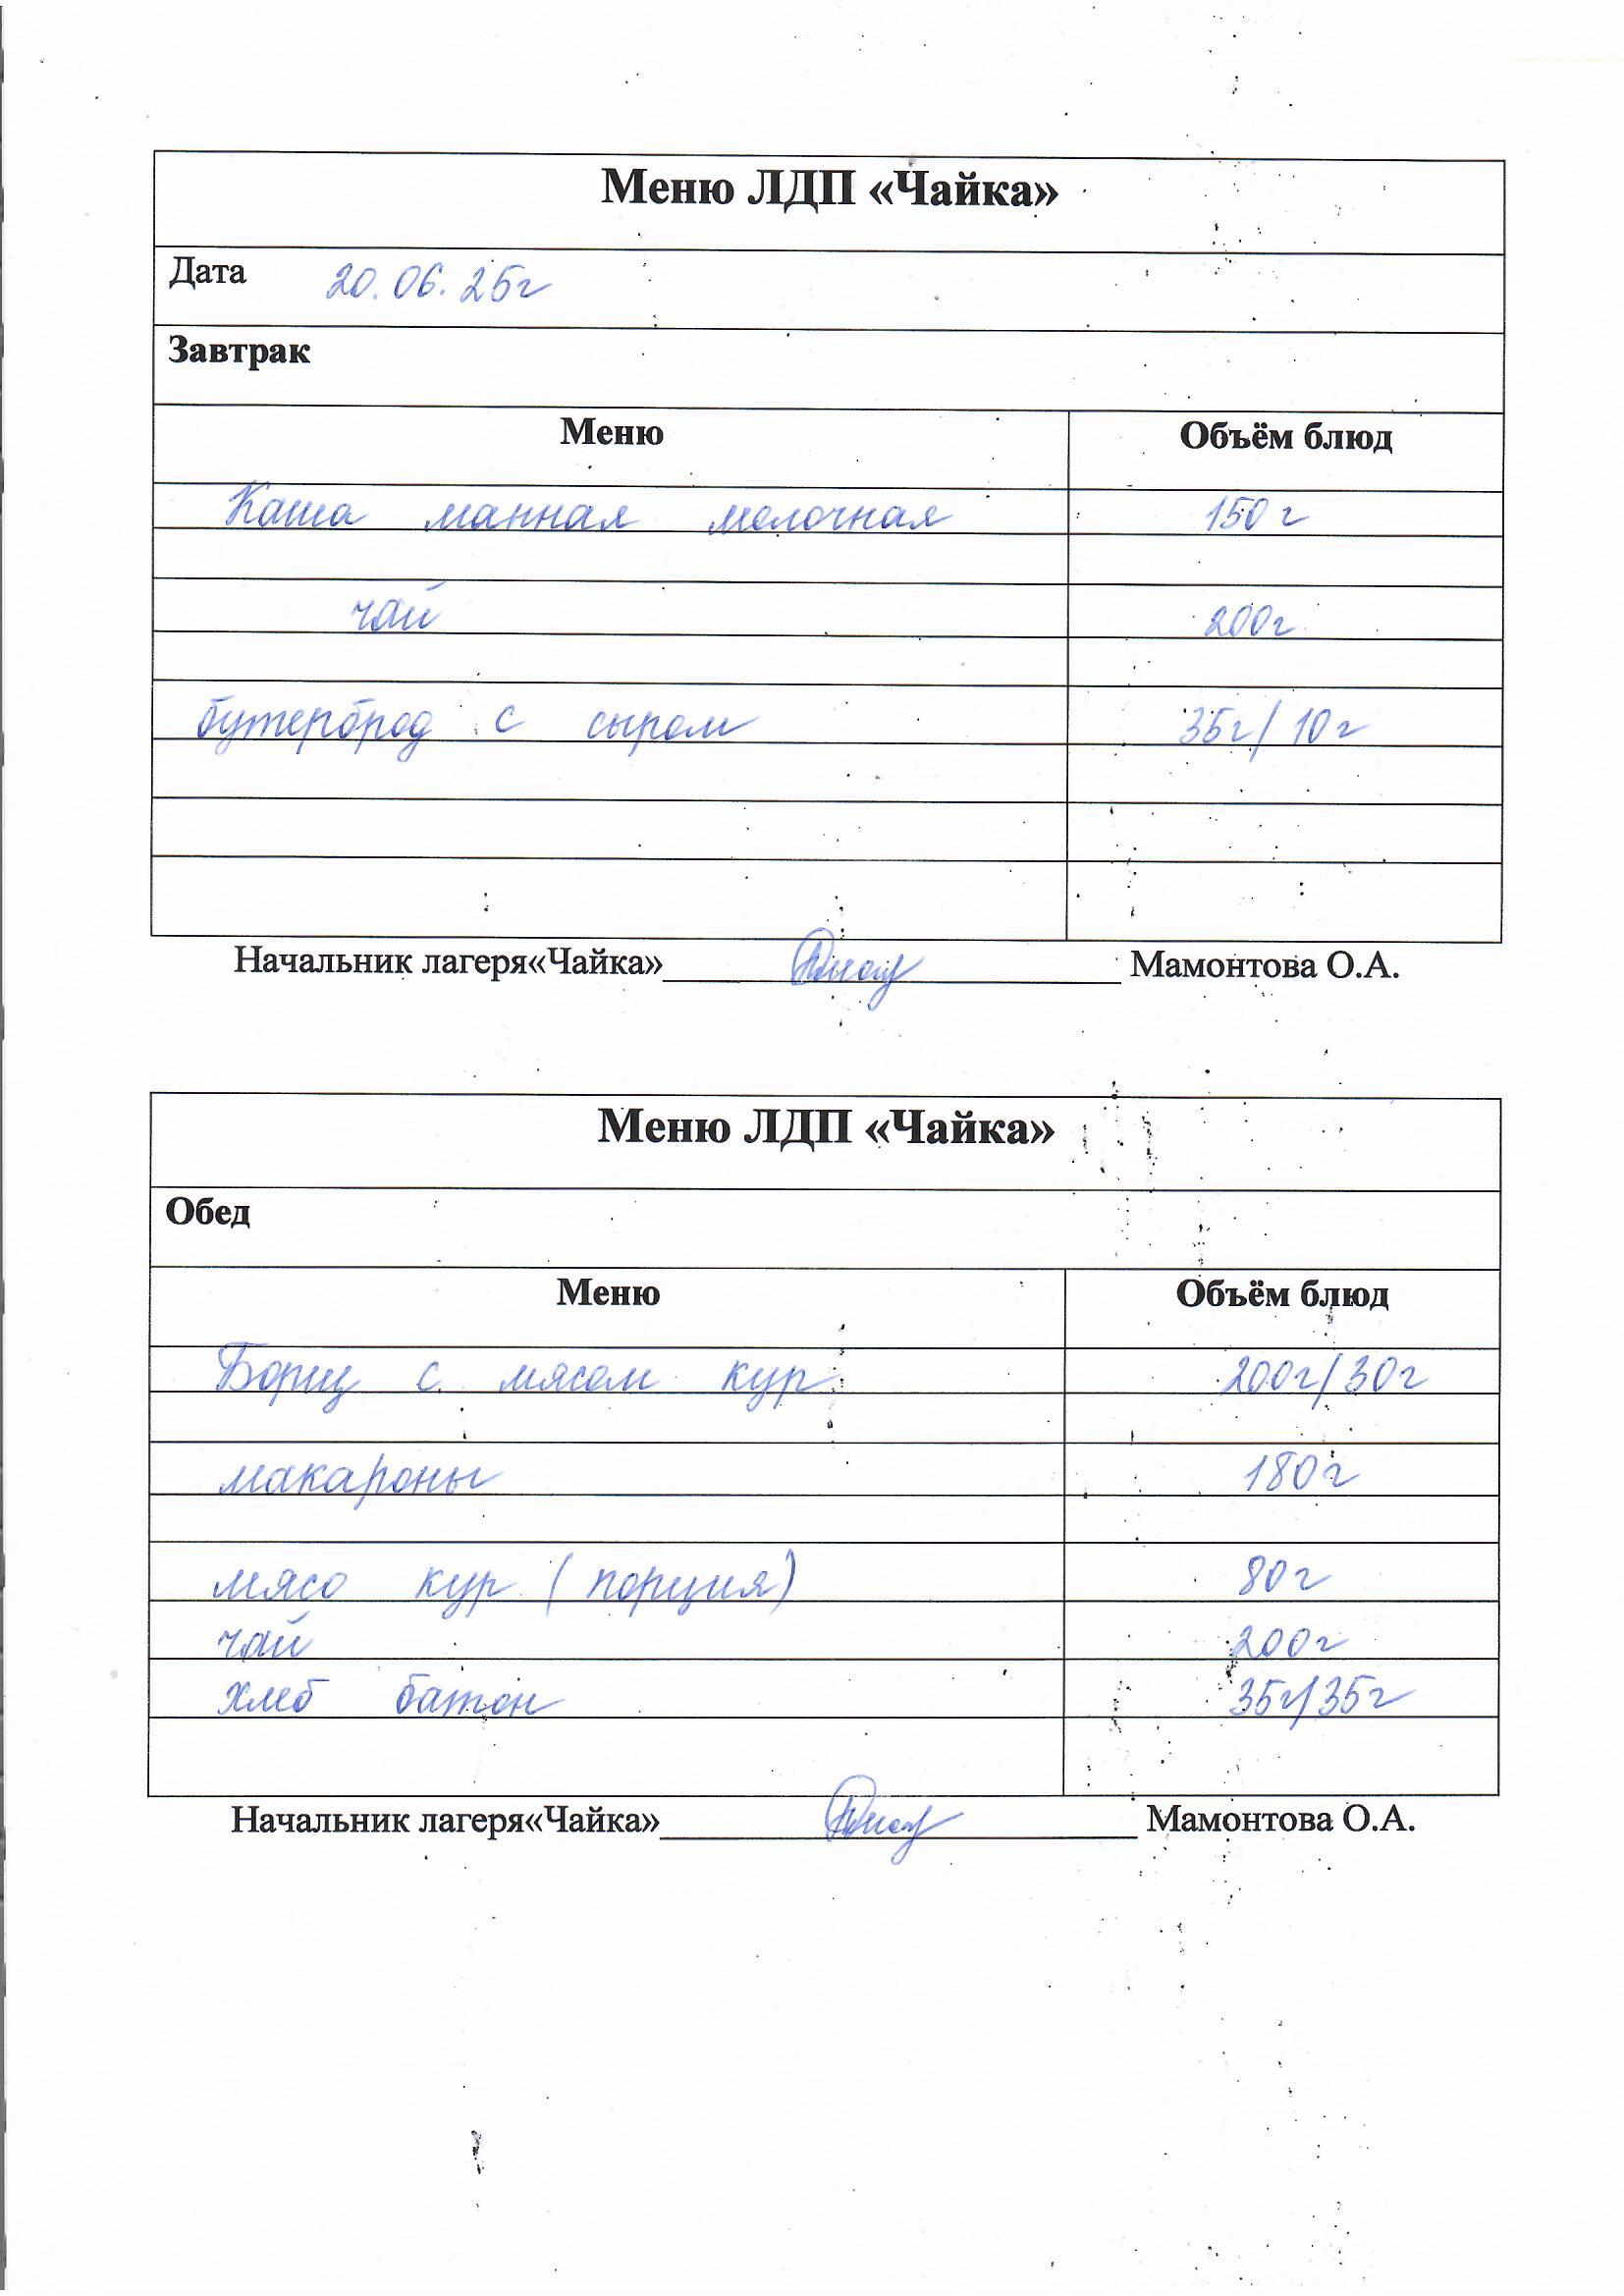 Меню ЛДП «Чайка»
Дата 20.06.25г
Завтрак
Меню Объём блюд
Каша манная молочная 150г
чай 200г
бутерброд с сыром 35г/10г
Начальник лагеря«Чайка» Мамонтова О.А.
Меню ЛДП «Чайка»
Обед
Меню Объём блюд
Борщ с мясом кур 200г/30г
макароны 180г
мясо кур (порция) 80г
чай 200г
хлеб батон 35г/35г
Начальник лагеря«Чайка» Мамонтова О.А.